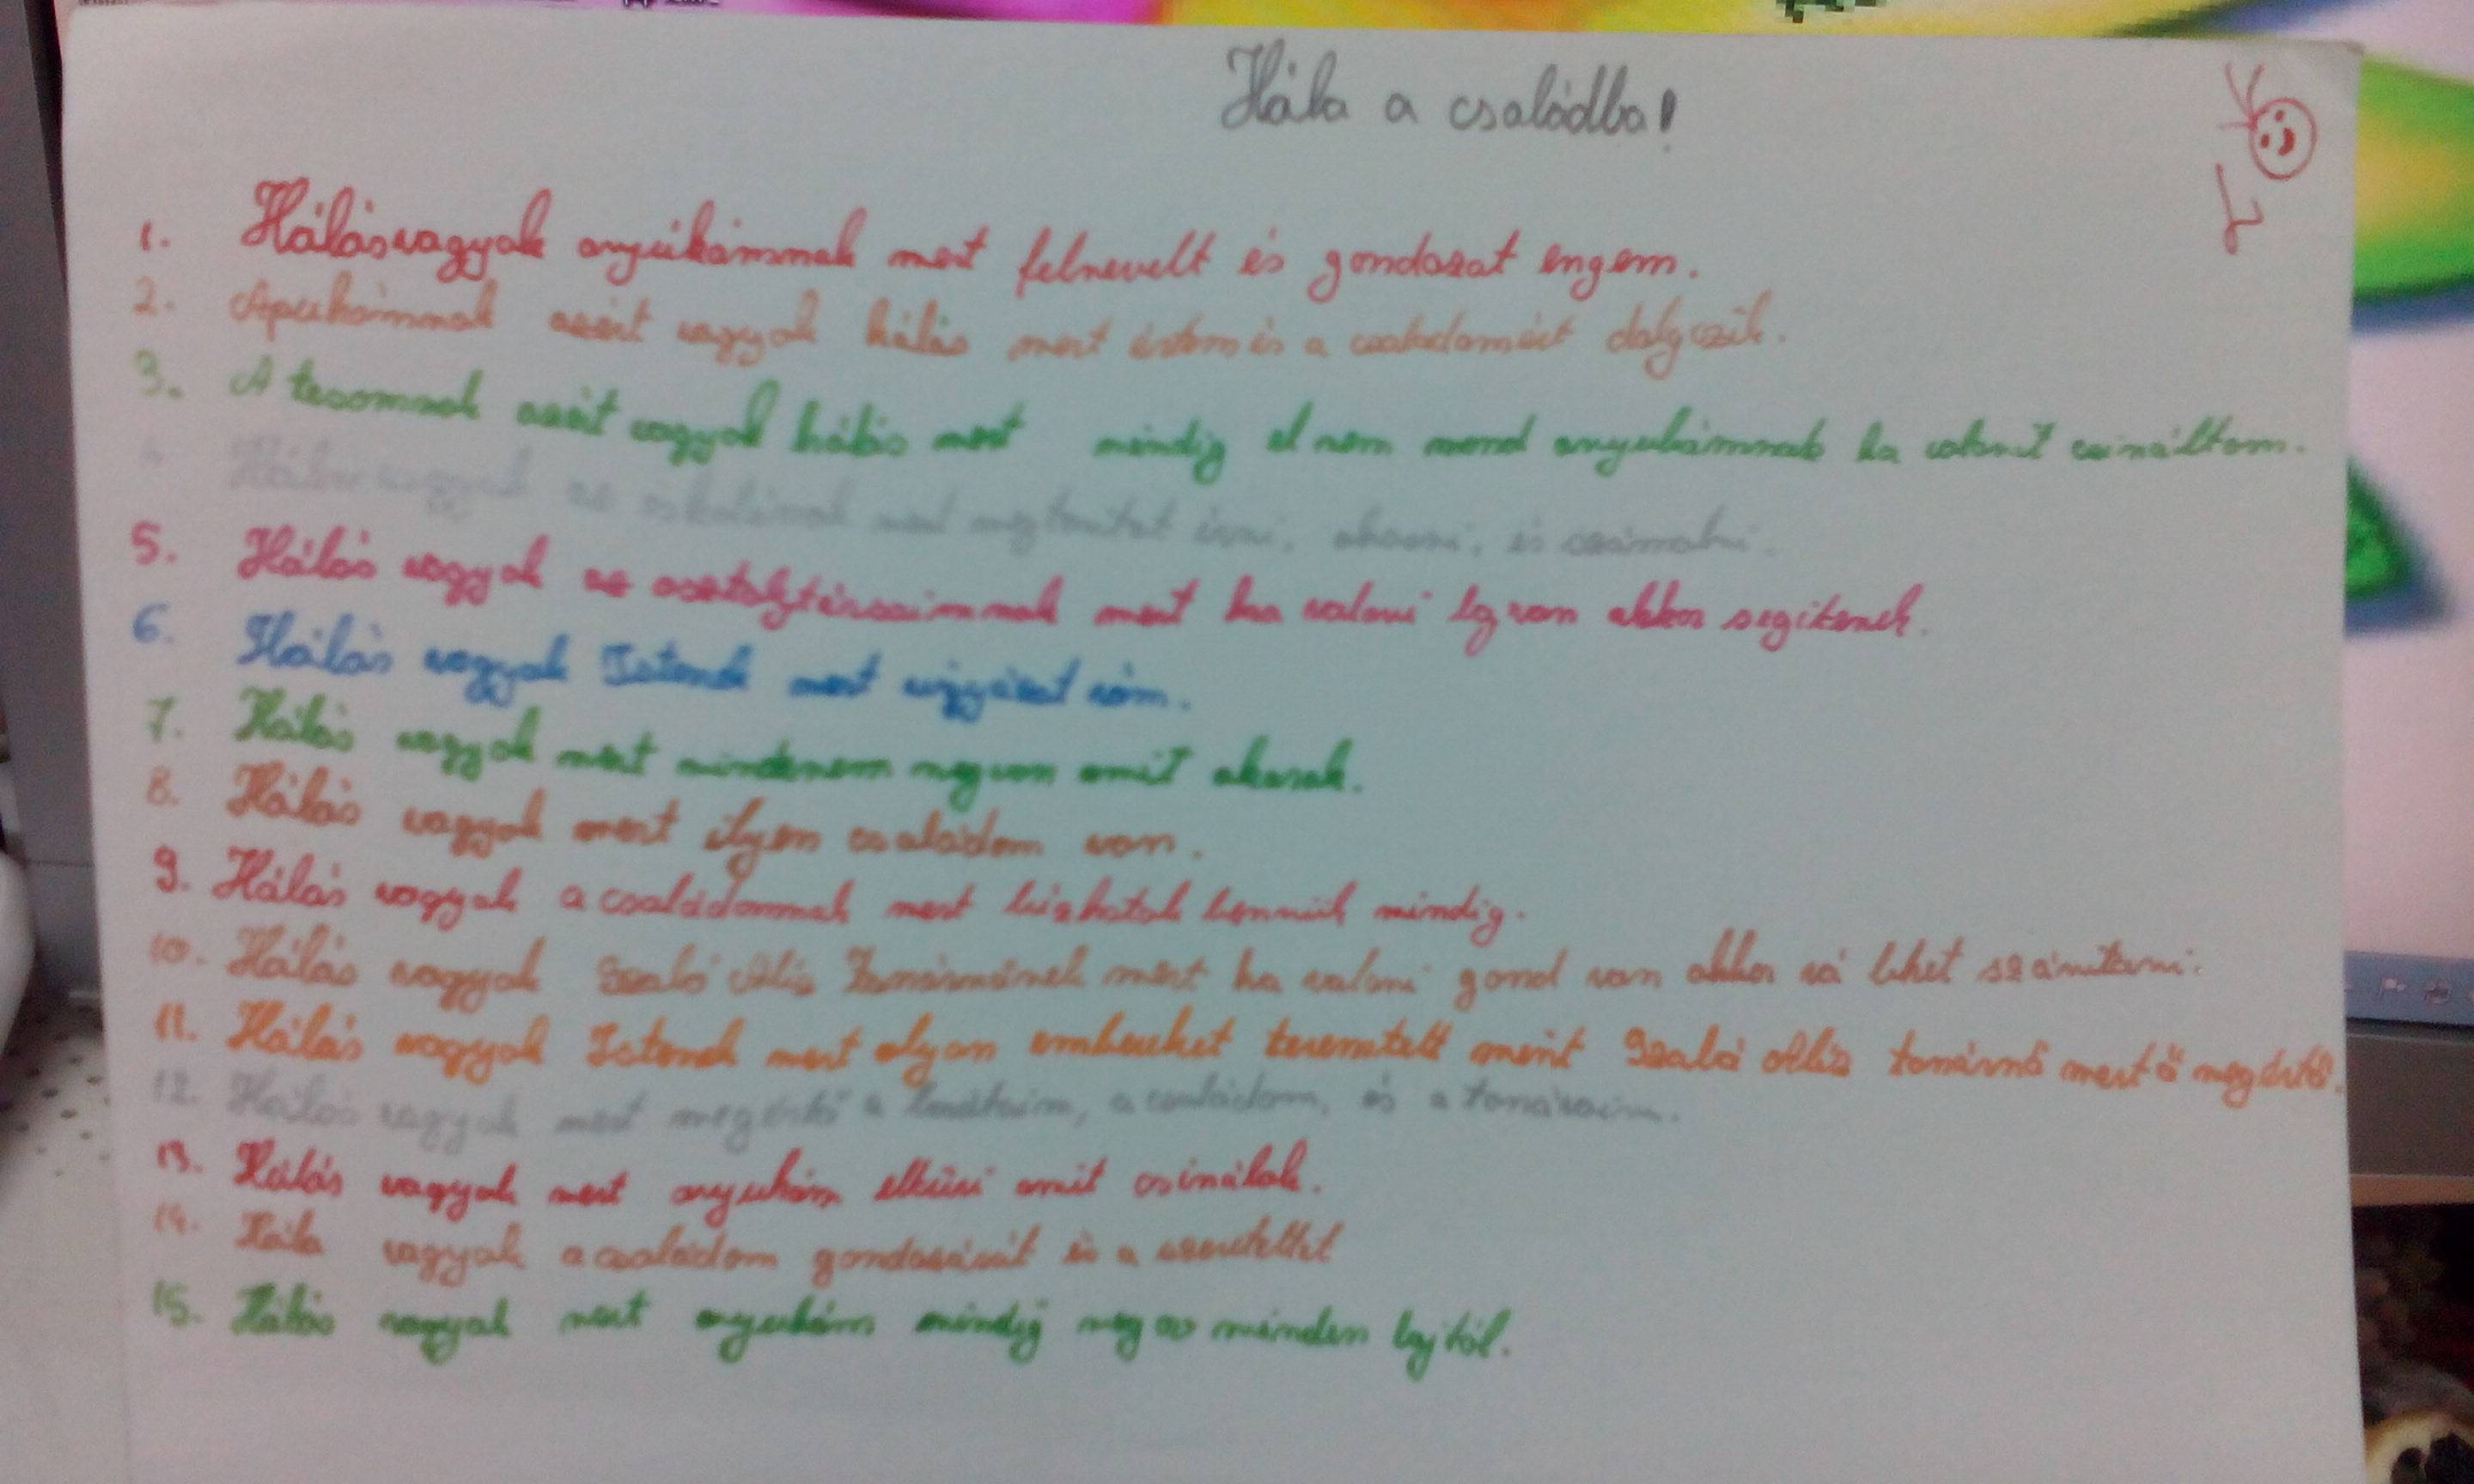 Hála a családba!
1. Hálásvagyok anyukámnak mert felnevelt és gondozot engem.
2. Apukámnak azért vagyok hálás mert értem és a családomért dolgozik.
3. A tesomnak azért vagyok hálás mert mindig el nem mond anyukámnak ha valamit csináltam.
4. Hálás vagyok az iskolának mert megtanitot írni, olvasni, és számolni.
5. Hálás vagyok az osztalytársaimnak mert ha valami baj van akkor segitenek.
6. Hálás vagyok Istenek mert vigyázot rám.
7. Hálás vagyok mert mindenem megvan amit akarok.
8. Hálás vagyok mert ilyen családom van.
9. Hálás vagyok a családomnak mert bízhatok bennük mindig.
10. Hálás vagyok Szabó Aliz Tanárnőnek mert ha valami gond van akkor rá lehet számítani.
11. Hálás vagyok Istenek mert olyan embereket teremtett mint Szabó Aliz tanárnő mert ő megértő.
12. Hálás vagyok mert megértő a barátaim, a családom, és a tanáraim.
13. Hálás vagyok mert anyukám eltűri amit csinálok.
14. Hála vagyok a családom gondozásáét és a szeretettet
15. Hálás vagyok mert anyukám mindíg meg óv minden bajtól.